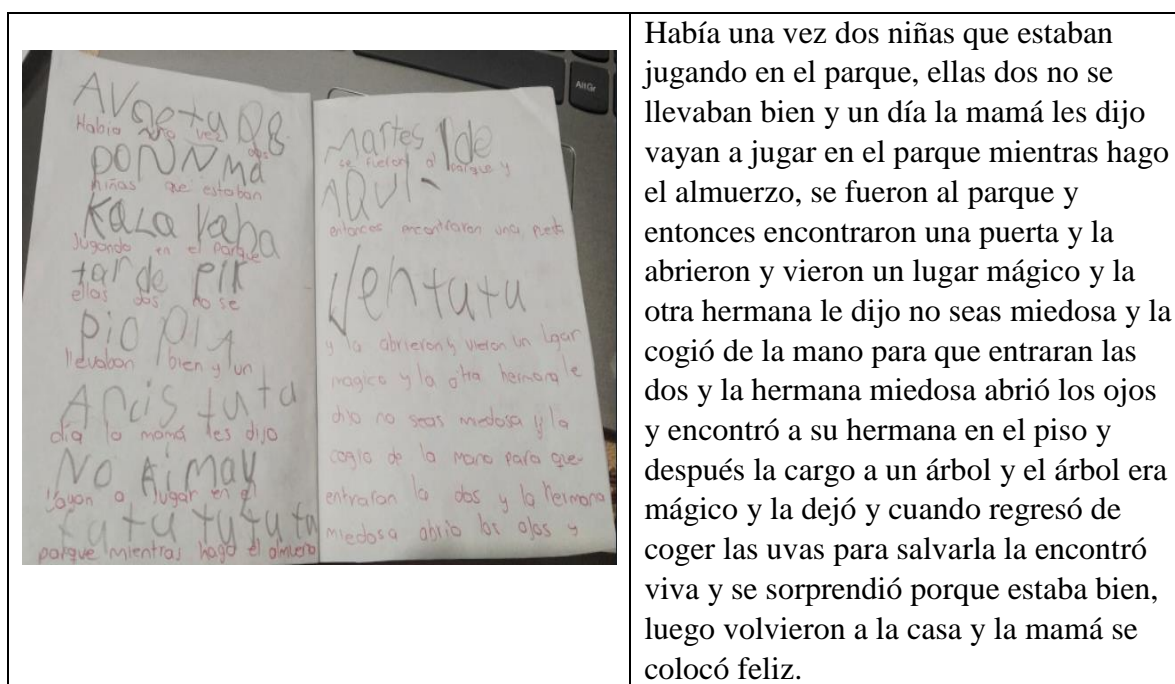 AltGr
Había una vez dos
niñas que estaban
Jugando en el Parque
tarde PIR
ellas dos no se
PIO PIA
llevaban bien y un
día la mamá les dijo
No
Vayan a Jugar en el
tutu tututu
parque mientras hago el almuerzo
Martes 1 de
se fueron al parque y
AQUI
entonces encontraron una puerta
Ventutu
y la abrieron y vieron un lugar
magico y la otra hermana le
dijo no seas miedosa y la
cogio de la mano para que
entraran la dos y la hermana
miedosa abrio los ojos y
Había una vez dos niñas que estaban
jugando en el parque, ellas dos no se
llevaban bien y un día la mamá les dijo
vayan a jugar en el parque mientras hago
el almuerzo, se fueron al parque y
entonces encontraron una puerta y la
abrieron y vieron un lugar mágico y la
otra hermana le dijo no seas miedosa y la
cogió de la mano para que entraran las
dos y la hermana miedosa abrió los ojos
y encontró a su hermana en el piso y
después la cargo a un árbol y el árbol era
mágico y la dejó y cuando regresó de
coger las uvas para salvarla la encontró
viva y se sorprendió porque estaba bien,
luego volvieron a la casa y la mamá se
colocó feliz.